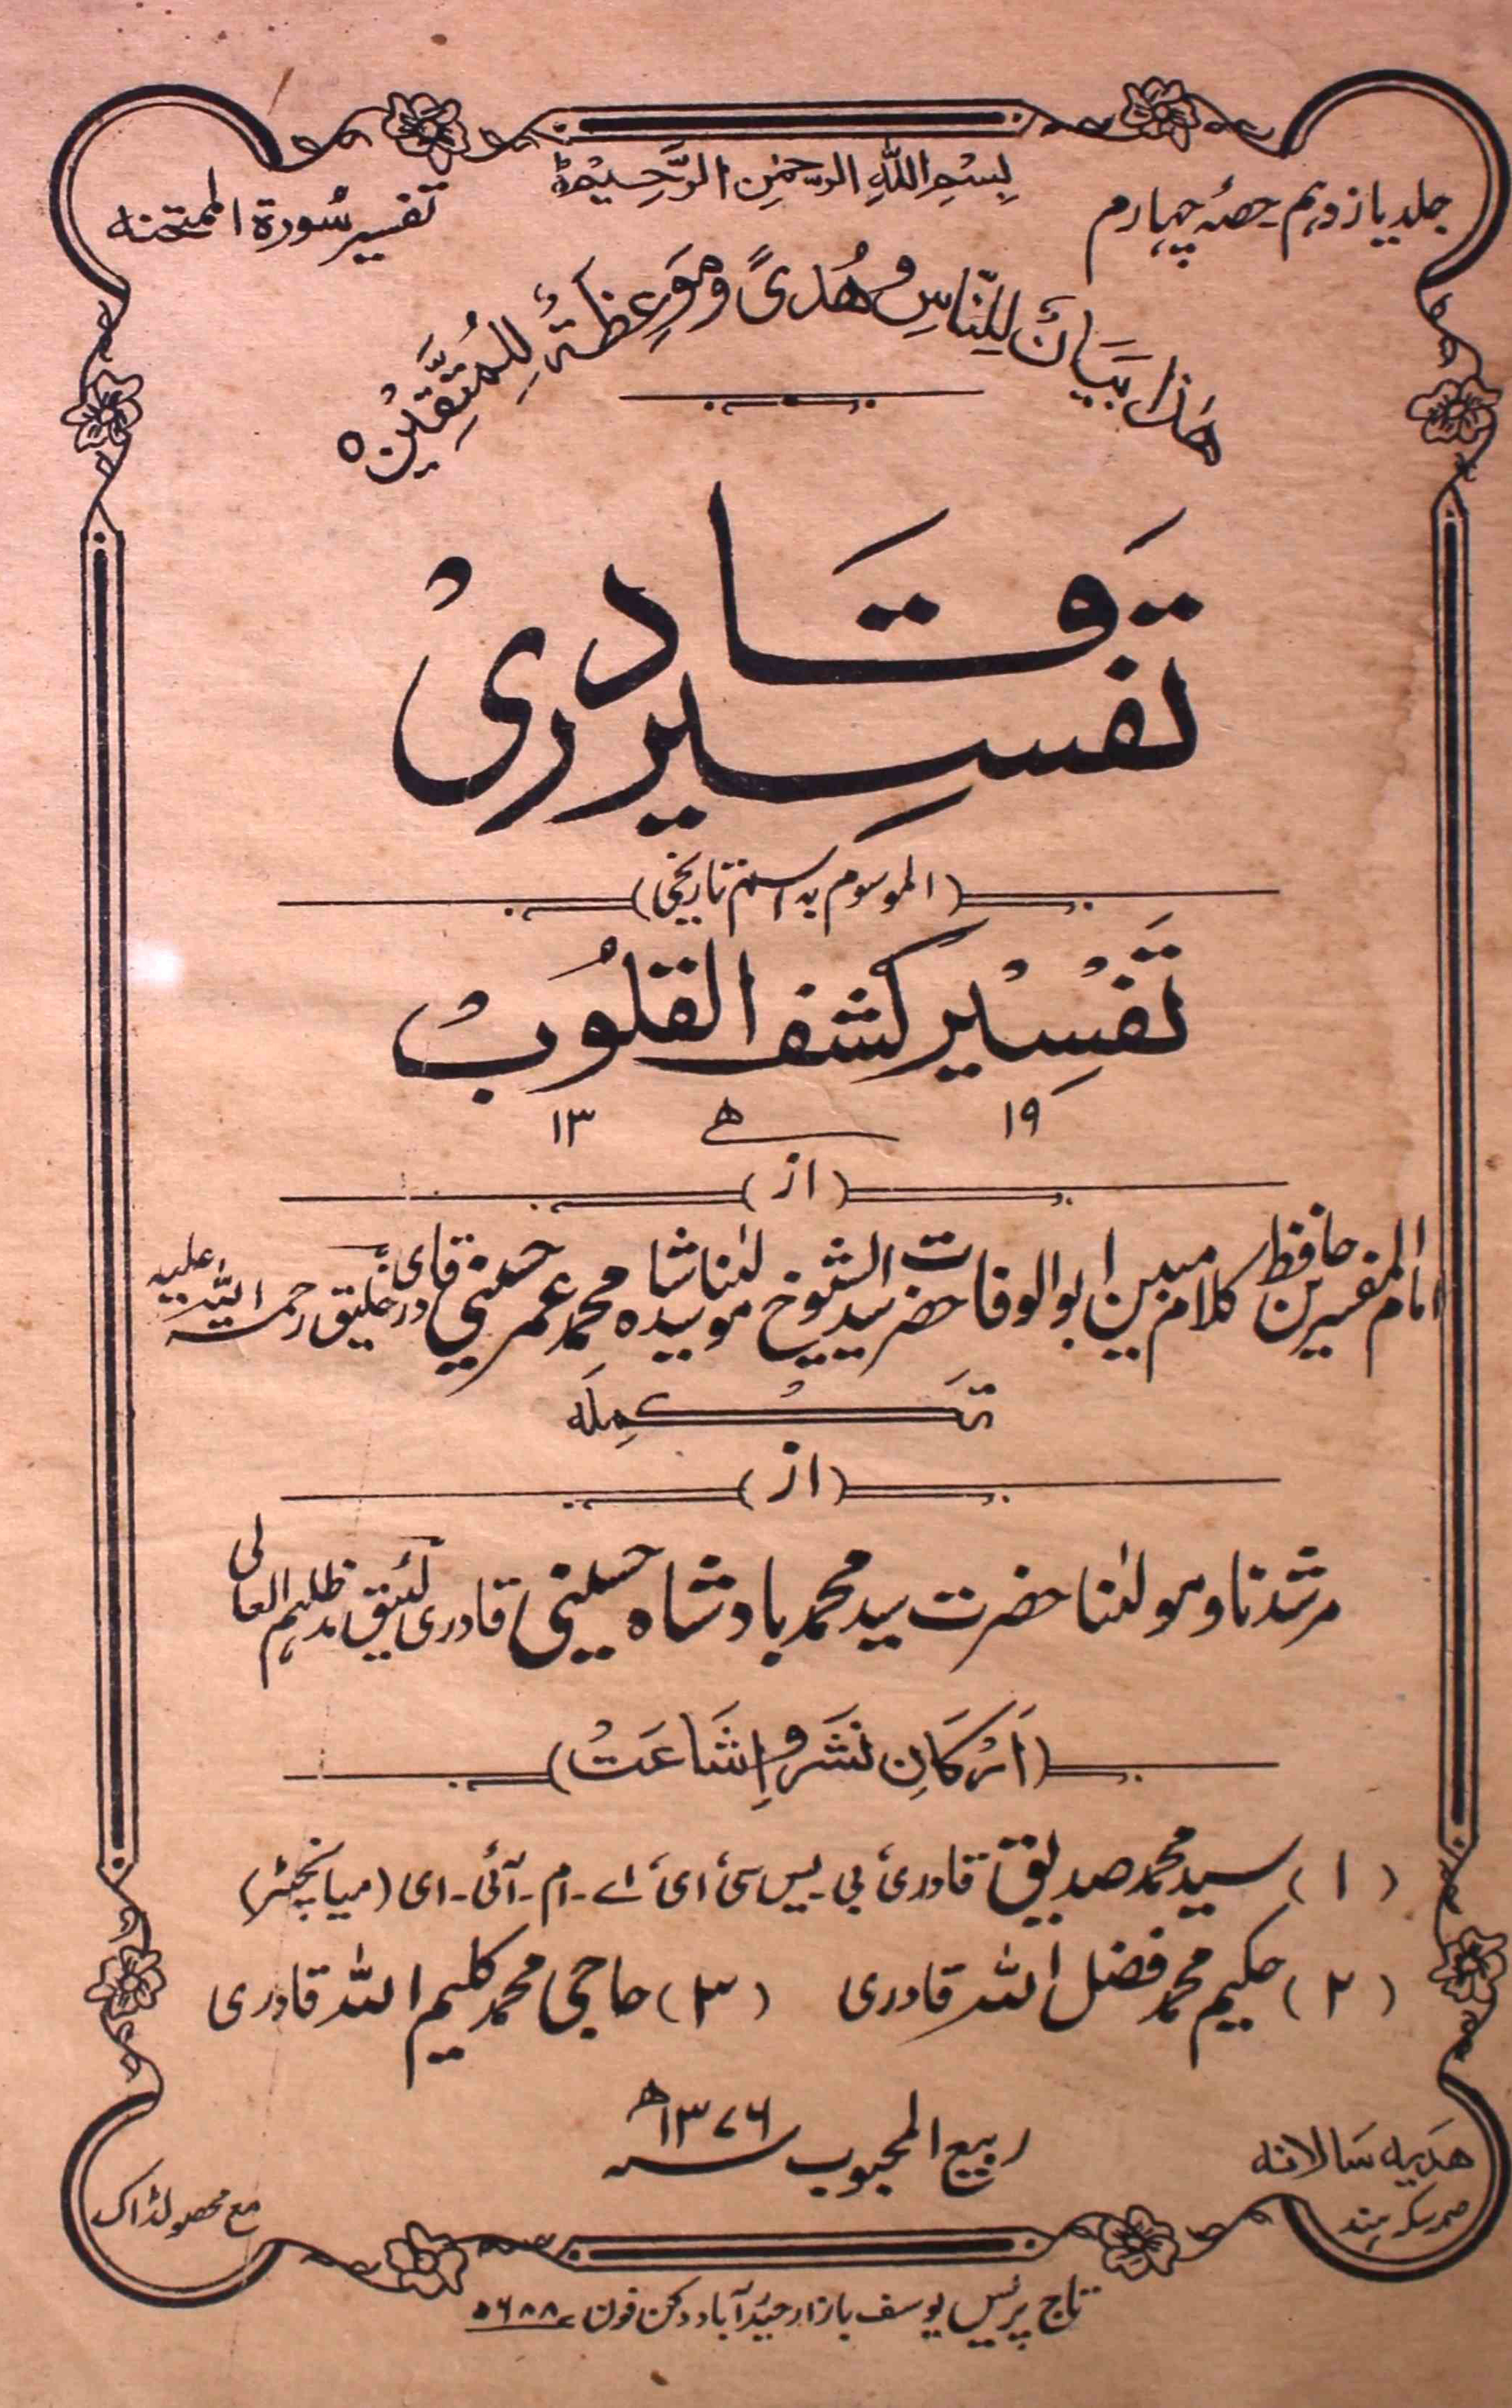 جلد یازدہم۔ حصہ چہارم
بِسْمِ اللّٰہِ الرَّحْمٰنِ الرَّحِیْمِ
تفسیر سُورۃ الممتحنہ
ھٰذَا بَیَانٌ لِلنَّاسِ وَھُدًی وَّمَوْعِظَۃٌ لِلْمُتَّقِیْنَ
تفسیر قادری
(الموسوم بہ اسم تاریخی)
تَفْسِیْر کشف القلُوبْ
۱۹ ھ ۱۳
(از)
امام المفسرین حافظ کلام مبین ابوالوفات حضرت سید الشیوخ مولٰنا سیدشاہ محمد عمر حسینی قادری خلیق رحمۃ اللہ علیہ
تکمِلَہ
(از)
مرشدنا و مولٰنا حضرت سید محمد بادشاہ حسینی قادری لئیق مدظلہم العالی
(اَرْکَانِ نَشَر و اِشَاعَتْ)
(۱) سید محمد صدیق قادری بی۔یس سی ای اے۔ام۔آئی۔ای (میانجٹر)
(۲) حکیم محمد فضل اللہ قادری (۳) حاجی محمد کلیم اللہ قادری
ربیع المحبوب سنہ ۱۳۷۶ھ
ھدیہ سالانہ
سکہ ہند
مع محصولڈاک
تاج پریس یوسف بازار حیدرآباد دکن فون ۵۶۸۸